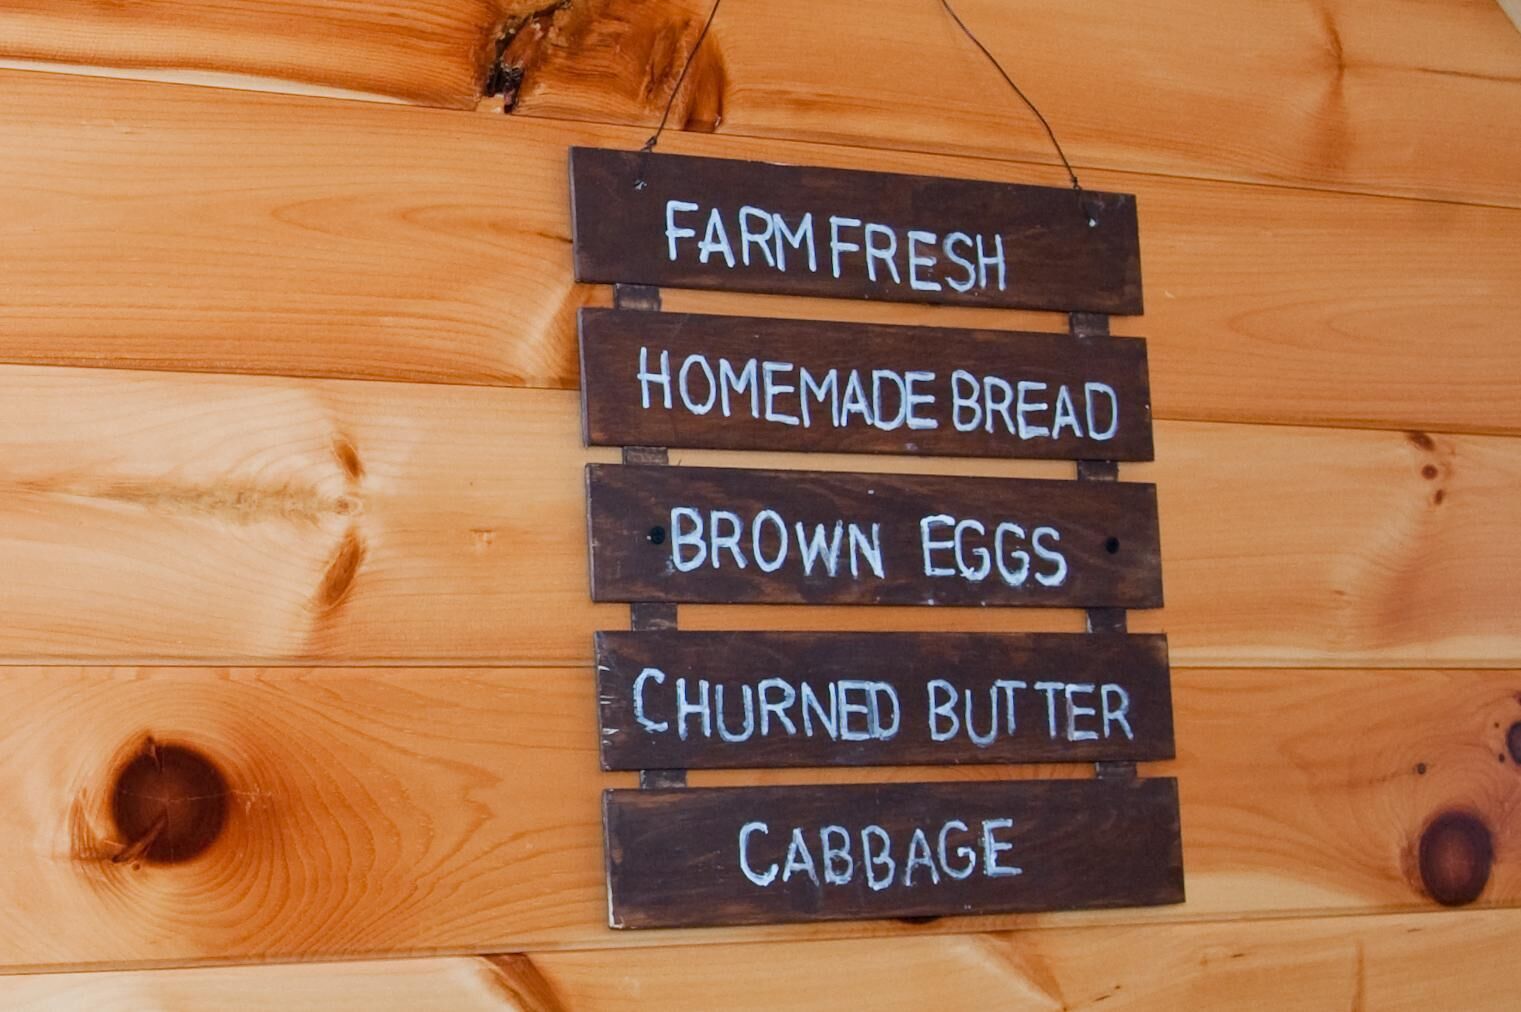 FARM FRESH
HOMEMADE BREAD
BROWN EGGS
CHURNED BUTTER
CABBAGE